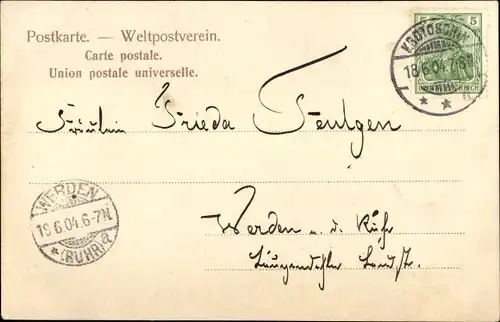 Postkarte. — Weltpostverein.
Carte postale.
Union postale universelle.
5 5
KROTOSCHIN
18.6.04.7-8N
Fräulein Frieda Teutgen
WERDEN
19.6.04.6-7N
*(RUHR)a
Werden a. d. Ruhr
Landstr.